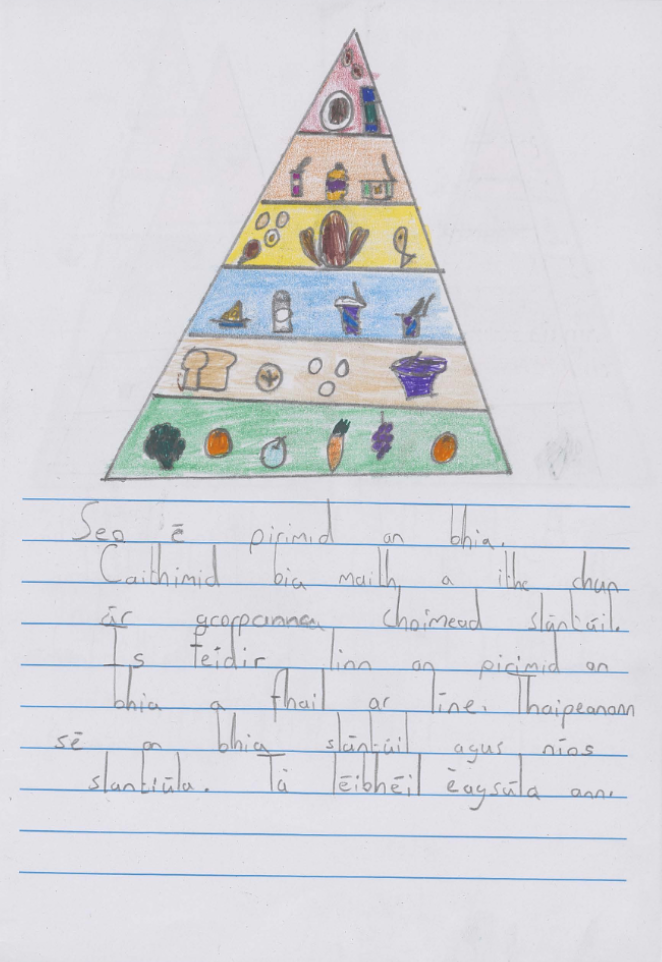 Seo é pirimid an bhia.
Caithimid bia maith a ithe chun
ár gcorpanna choimead slántúil.
Is féidir linn an pirimid an
bhia a fháil ar líne. Thaipeanann
sé an bhia slántúil agus níos
slantiúla. Tá léibhéil éagsúla ann.